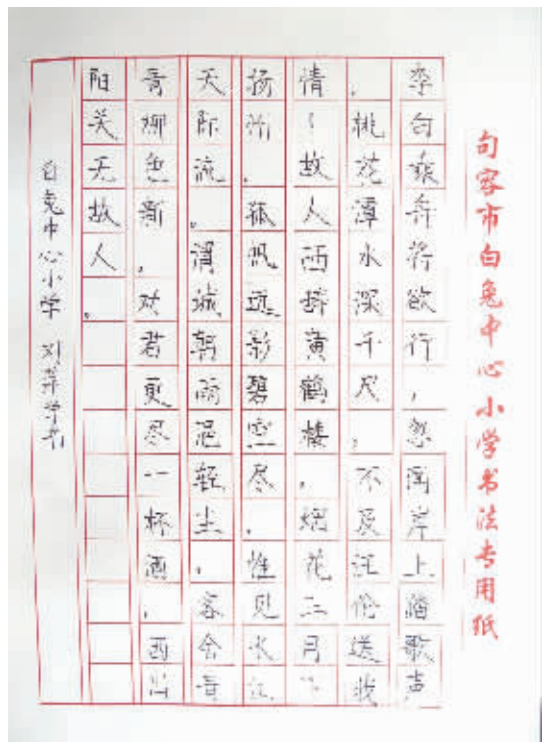 句容市白兔中心小学书法专用纸
李白乘舟将欲行,忽闻岸上踏歌声
,桃花潭水深千尺,不及汪伦送我
情!故人西辞黄鹤楼,烟花三月下
扬州。孤帆远影碧空尽,惟见长江
天际流。渭城朝雨浥轻尘,客舍青
青柳色新,劝君更尽一杯酒,西出
阳关无故人。
白兔中心小学 刘 学书